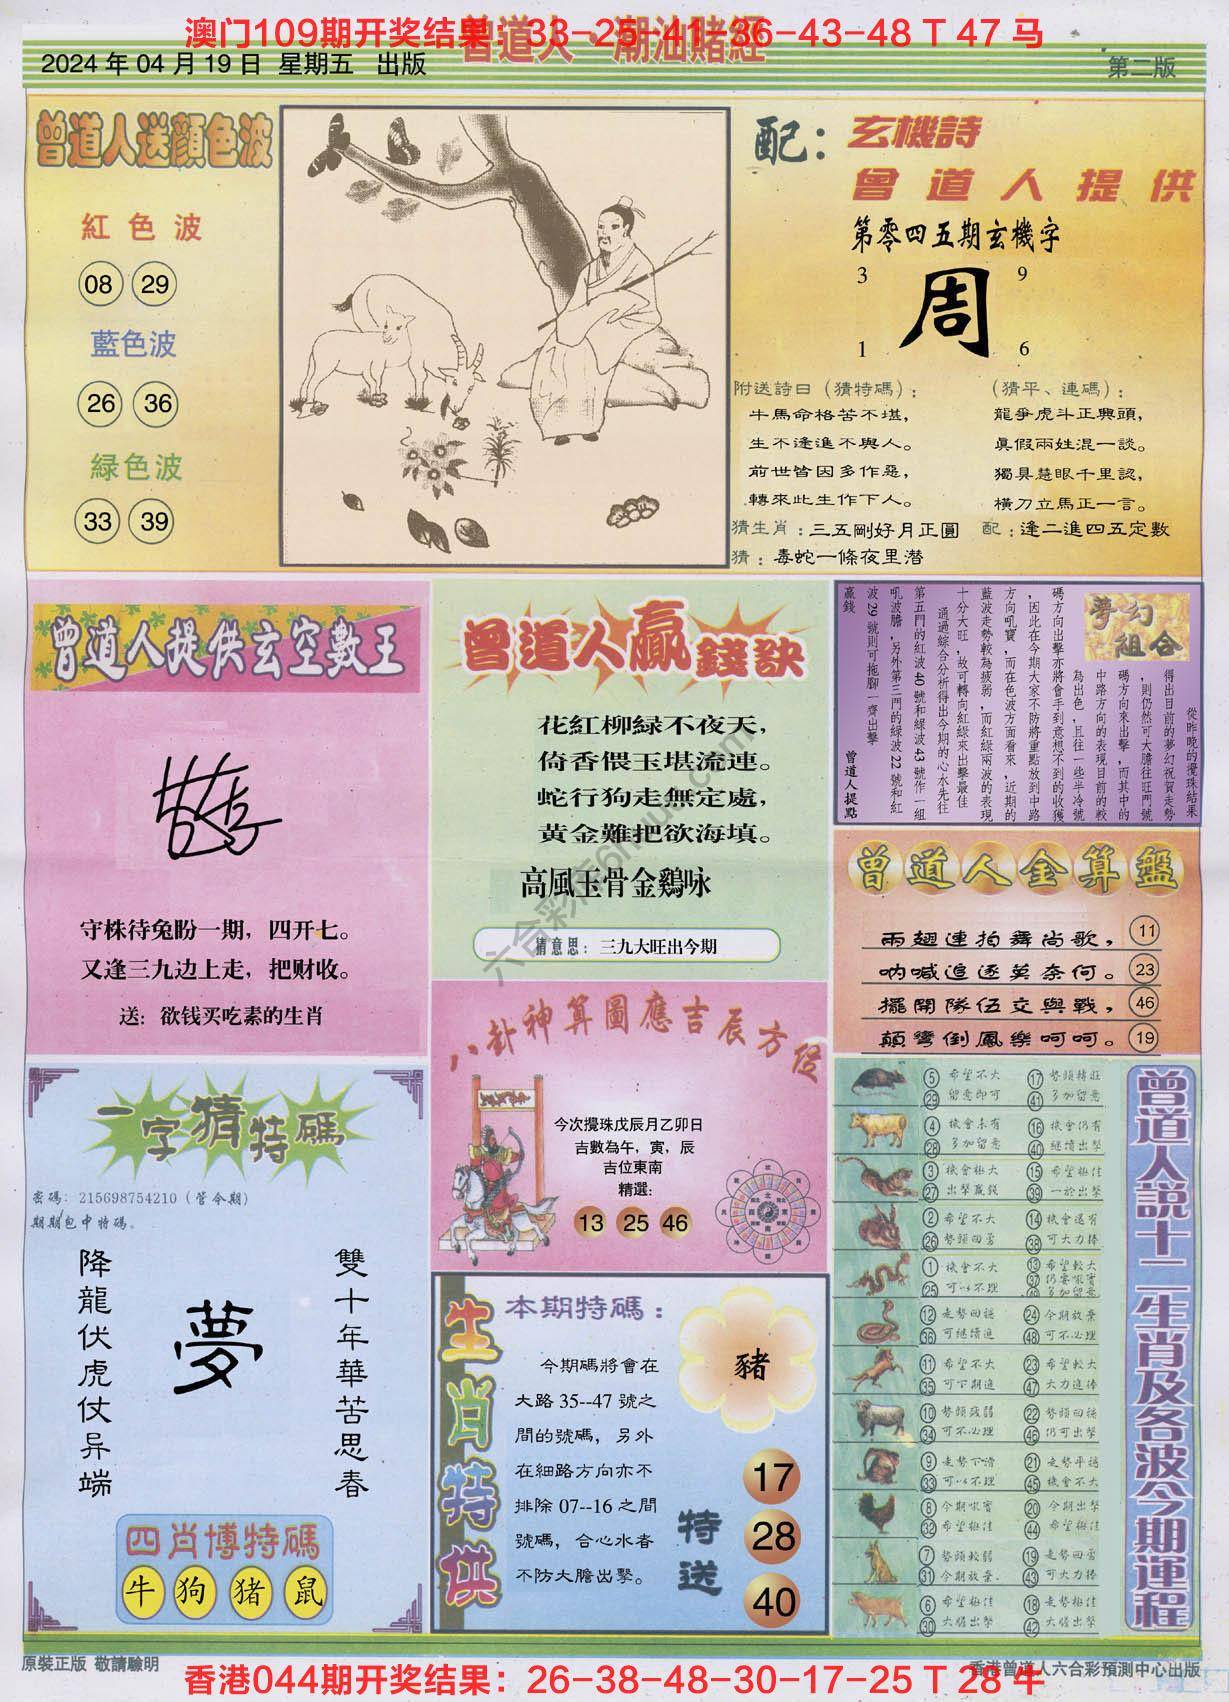 澳门109期开奖结果：33-25-41-36-43-48 T 47 马
曾道人·潮汕賭經
2024 年 04 月 19 日 星期五 出版
第二版
曾道人送顏色波
紅色波
08 29
藍色波
26 36
緑色波
33 39
配：
玄機詩
曾道人提供
第零四五期玄機字
3 9
周
1 6
附送詩曰（猜特碼）：
牛馬命格苦不堪，
生不逢進不與人。
前世皆因多作惡，
轉來此生作下人。
（猜平、連碼）：
龍爭虎斗正興頭，
真假兩姓混一談。
獨具慧眼千里認，
橫刀立馬正一言。
猜生肖：三五剛好月正圓
配：逢二進四五定數
猜：毒蛇一條夜里潛
曾道人提供玄空數王
守株待兔盼一期，四开七。
又逢三九边上走，把财收。
送：欲钱买吃素的生肖
曾道人贏錢訣
花紅柳緑不夜天，
倚香偎玉堪流連。
蛇行狗走無定處，
黃金難把欲海填。
高風玉骨金鷄咏
猜意思：三九大旺出今期
夢幻組合
從昨晚的攪珠結果
得出目前的夢幻祝賀走勢
，則仍然可大膽往旺門號
碼方向來出擊，而其中的
中路方向的表現目前的較
為出色，且往一些半冷號
碼方向出擊亦將會手到意想不到的收獲
，因此在今期大家不防將重點放到中路
方向吼寶，而在色波方面看來，近期的
藍波走勢較為疲弱，而紅緑兩波的表現
十分大旺，故可轉向紅緑來出擊最佳
通過綜合分析得出今期的心水先往
第五門的紅波 40 號和緑波 43 號作一組
吼波膽，另外第三門的緑波 22 號和紅
波 29 號則可拖腳一齊出擊
贏錢
曾道人提點
曾道人金算盤
兩翅連拍舞尚歌， 11
吶喊追逐莫奈何。 23
擺開隊伍交與戰， 46
顛鸞倒鳳樂呵呵。 19
八卦神算圖應吉辰方位
今次攪珠戊辰月乙卯日
吉數為午，寅，辰
吉位東南
精選：
13 25 46
一字猜特碼
密碼：215698754210（管今期）
期期包中特碼。
降龍伏虎仗异端
夢
雙十年華苦思春
四肖博特碼
牛 狗 猪 鼠
生肖特供
本期特碼：
今期碼將會在
大路 35--47 號之
間的號碼，另外
在細路方向亦不
排除 07--16 之間
號碼，合心水者
不防大膽出擊。
豬
特送
17
28
40
曾道人説十二生肖及各波今期運程
⑤ 希望不大 ⑰ 勢頭轉旺
㉙ 留意即可 ㊶ 多加留意
④ 機會未有 ⑯ 機會仍有
㉘ 多加留意 ㊵ 繼續出擊
③ 機會極大 ⑮ 希望極佳
㉗ 出擊贏錢 ㊴ 一於出擊
② 希望不大 ⑭ 機會還有
㉖ 勢頭回勇 ㊳ 可大力捧
① 機會不大 ⑬ 希望較大
㉕ 可以不理 ㊲
⑫ 走勢回穩 ㉔ 今期放棄
㊱ 可繼續追 ㊽ 可不必理
⑪ 希望不大 ㉓ 希望較大
㉟ 可下期進 ㊼ 大力追捧
⑩ 勢頭疲弱 ㉒ 勢頭回穩
㉞ 可不必理 ㊻ 仍可出擊
⑨ 走勢下滑 ㉑ 走勢平穩
㉝ 可以不理 ㊺ 機會不大
⑧ 今期吼寶 ⑳ 今期出擊
㉜ 希望極佳 ㊹ 希望極佳
⑦ 勢頭較弱 ⑲ 走勢回勇
㉛ 今期放棄. ㊸ 可大力捧
⑥ 希望極佳 ⑱ 走勢極佳
㉚ 大膽出擊 ㊷ 大膽出擊
原裝正版 敬請驗明
香港曾道人六合彩預測中心出版
香港044期开奖结果：26-38-48-30-17-25 T 28 牛